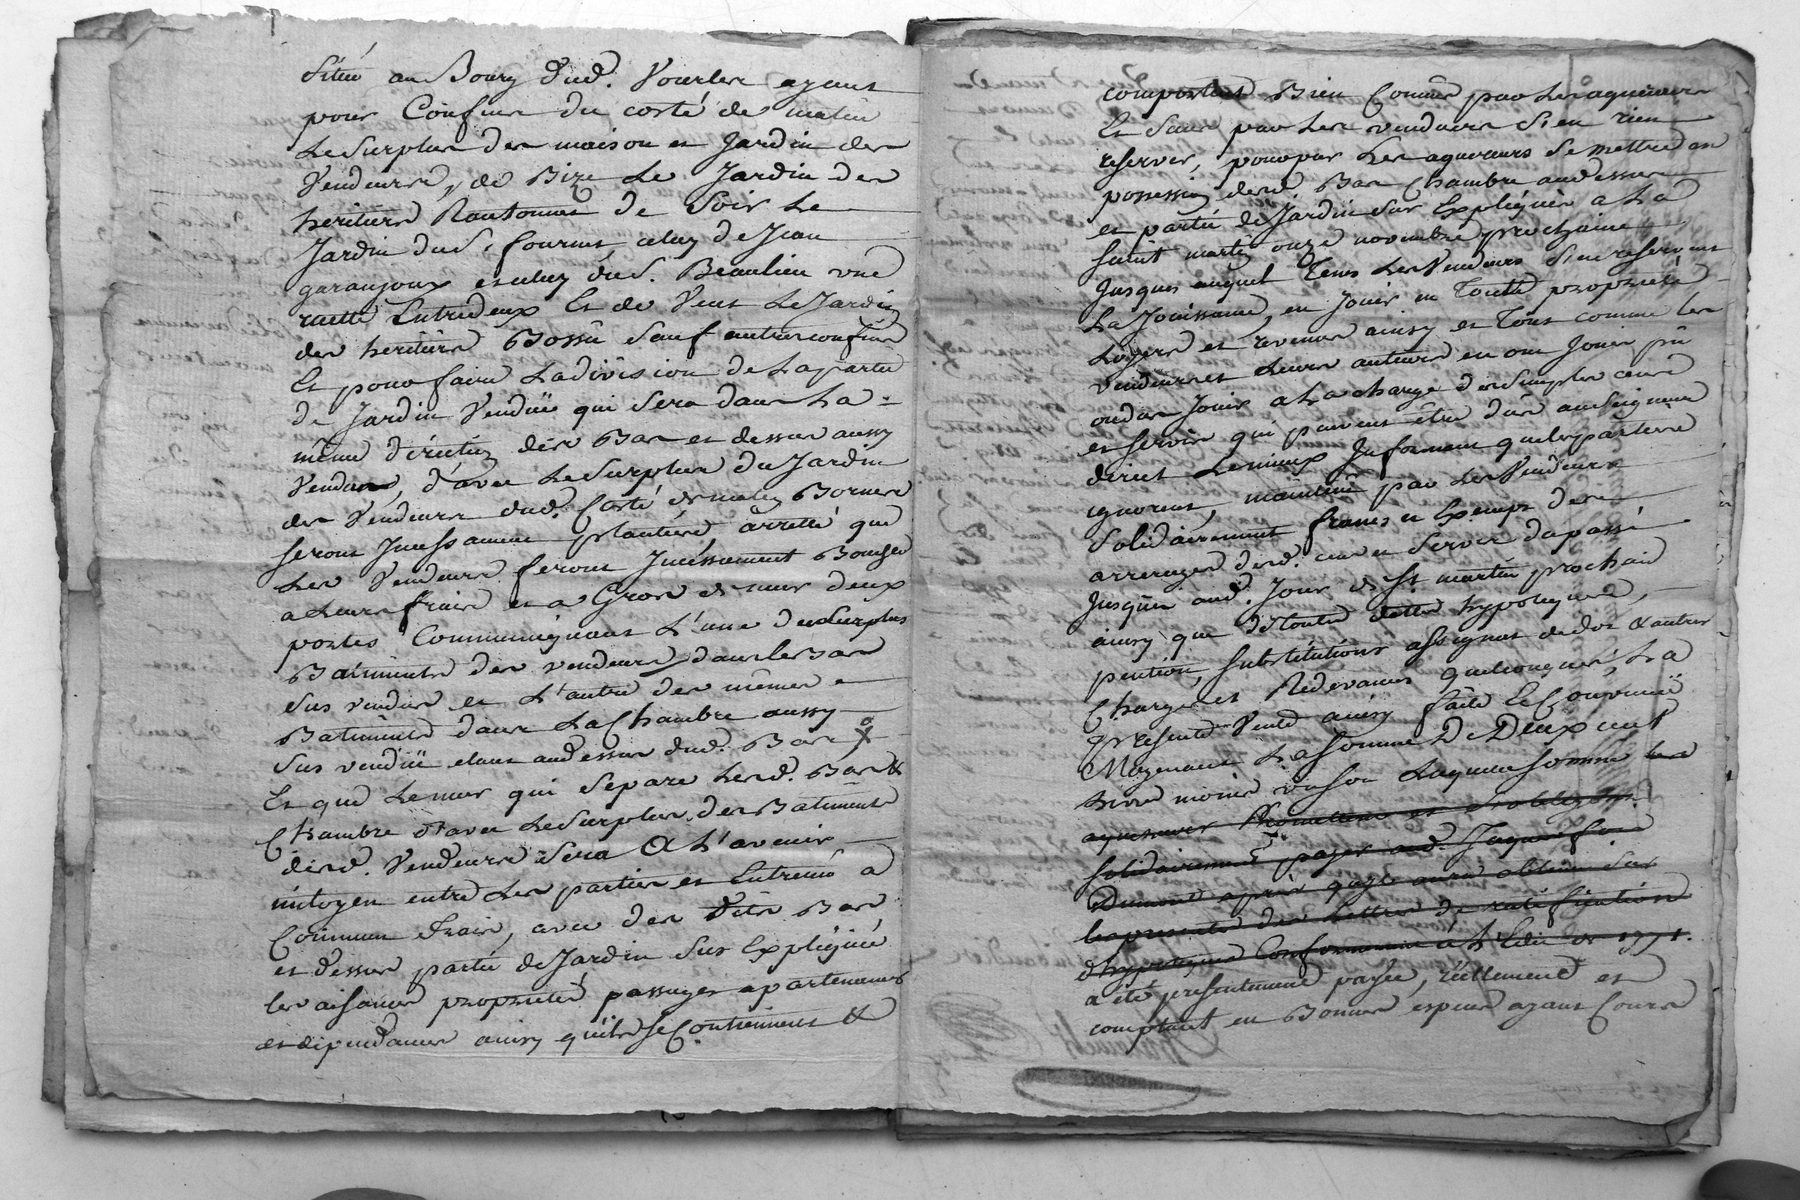 Située au Bourg dud. Vourles ayant
pour Confins du costé de matin
Le Surplus des maison et Jardin des
Vendeurs, de Bize Le Jardin des
heritiers de Soir Le
Jardin du S. fournet, celuy de Jean
garanjoux et celuy dud. S. Beaulieu une
ruette Entredeux Et de Vent Le Jardin
des heritiers Bossû Sauf autres confins
Et pour faire La division de La partie
de Jardin Vendüe qui Sera dans La =
même diréction dés Bas et dessus aussy
Vendus, d'avec Le Surplus du Jardin
des Vendeurs dud. Costé de matin Bornes
Seront Jncessament plantées, arretté que
Les Vendeurs feront Jncéssament Boucher
a Leurs frais et a Gros de mur deux
portes Communiquant L'une du Surplus
Batiments des vendeurs dans les Bas
Sus vendus et L'autre des mêmes
Batiments dans La Chambre aussy
Sus vendüe etant audessus dud. Bas
Et que Le mur qui Separe Lesd. Bas &
Chambre d'avec Le Surplus des Batiments
desd. Vendeurs Sera a L'avenir
mitoyen entre Les parties et Entretenü a
Commun frais, avec des dits Bas
et dessus partie de Jardin Sus Expliquée
les aisances proprietés passages apartenances
et dépendances ainsy qu'ils Se Contiennent &
comportent Bien Connus par Les aquereurs
Et Sans par Les vendeurs S'en rien
reserver, pour par Les aquereurs Se mettre en
possession desd. Bas Chambre audessus
et partie de Jardin Sus Expliquée a La
Saint martin onze novembre prochaine
Jusques auquel Tems Les Vendeurs S'en reservent
La Jouissance, en Jouir en Toutte proprieté
Loyers et revenus ainsy et Tout comme les
vendeurs et Leurs auteurs en ont Joui pû
ou dû Jouir a La charge des Simples cens
et servis qui peuvent être dûs au Seigneur
direct Le mieux Jnformant que les parties
ignorent, maintenu par Les Vendeurs
Solidairement francs et Exempt des
arrerages desd. cens et Servis du passé
Jusqu'au aud. Jour de St martin prochain
ainsy que de toutte dette hypotéque,
pention, Substitutions assignat de dot & autres
Charges et Redevances quelconques, La
presente Vente ainsy faite Et Convenüe
Moyenant La Somme De Deux cent
livres moins un sol Laquelle Somme les
aquereurs Promettent et s'obligent
Solidairement payer aud. Jaques
Dumond après qu'ils auront obtenu Sur
les presentes des Lettres de ratification
d'hypoteque Conformement à L'Edit de 1771.
a été presentement payée, réellement et
comptant en Bonnes especes ayant Cours